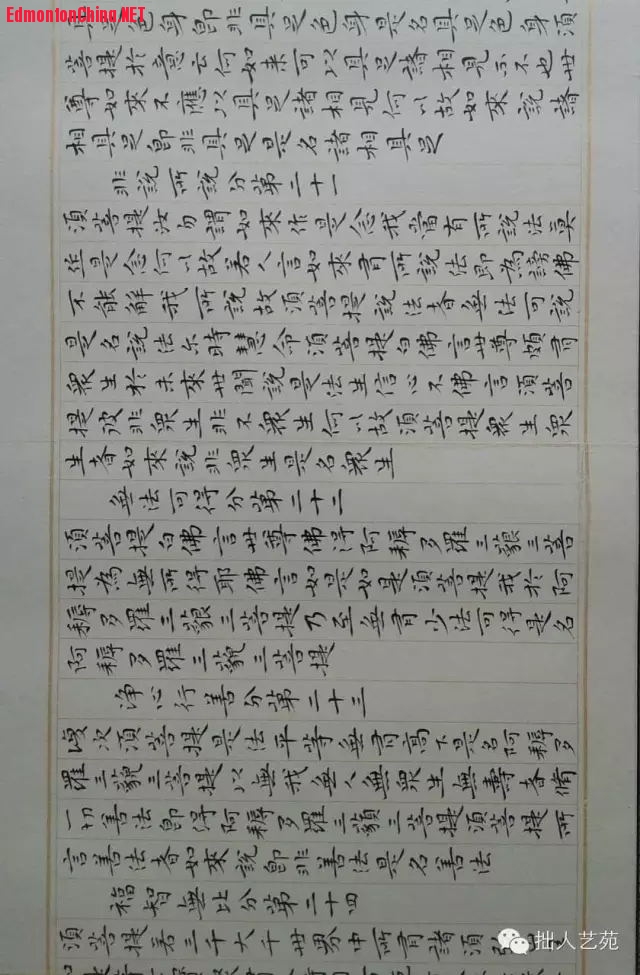 EdmontonChina.NET
具足色身即非具足色身是名具足色身須
菩提於意云何如来可以具足諸相見不不也世
尊如來不應以具足諸相見何以故如來說諸
相具足即非具足是名諸相具足
非說所說分第二十一
須菩提汝勿謂如來作是念我當有所說法莫
作是念何以故若人言如來有所說法即為謗佛
不能解我所說故須菩提說法者無法可說
是名說法尔時慧命須菩提白佛言世尊頗有
衆生於未來世聞說是法生信心不佛言須菩
提彼非衆生非不衆生何以故須菩提衆生衆
生者如來說非衆生是名衆生
無法可得分第二十二
須菩提白佛言世尊佛得阿耨多羅三藐三菩
提為無所得耶佛言如是如是須菩提我於阿
耨多羅三藐三菩提乃至無有少法可得是名
阿耨多羅三藐三菩提
淨心行善分第二十三
復次須菩提是法平等無有高下是名阿耨多
羅三藐三菩提以無我無人無衆生無壽者脩
一切善法即得阿耨多羅三藐三菩提須菩提所
言善法者如來說即非善法是名善法
福智無比分第二十四
須菩提若三千大千世界中所有諸須弥
拙人艺苑